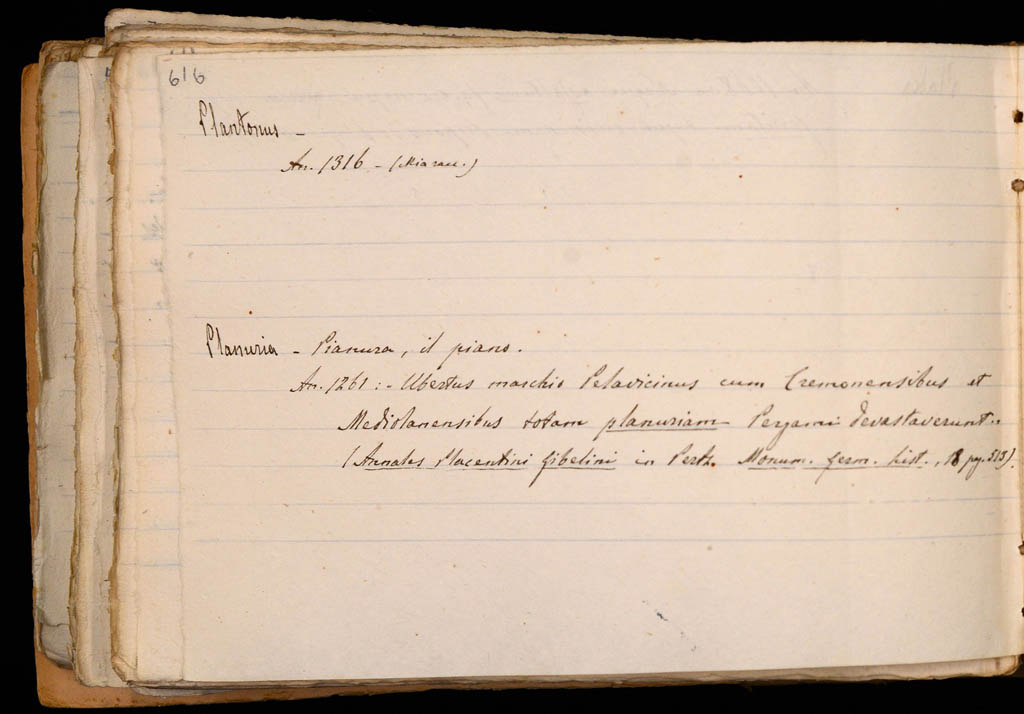 616
Plantonus -
An. 1316 - ( )
Planuria - Pianura, il piano.
An. 1261: - Ubertus marchio Pelavicinus cum Cremonensibus et
Mediolanensibus totam planuriam Pergami devastaverunt..
(Annales Placentini gibelini in Pertz. Monum. germ. hist., 18 pg. 513).